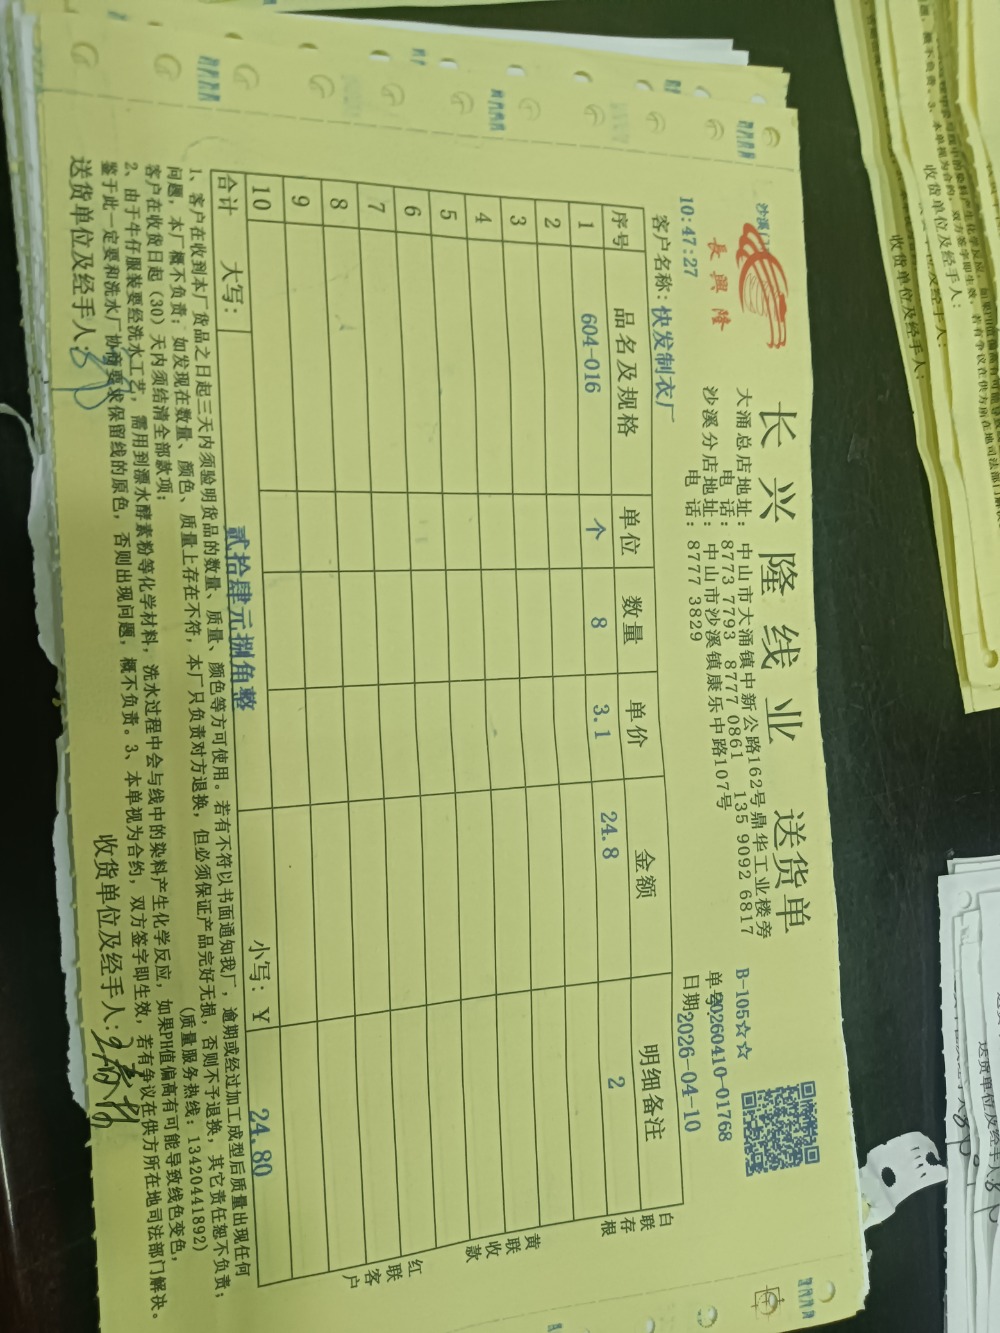 长兴隆线业 送货单
沙溪门
長興隆
大涌总店地址: 中山市大涌镇中新公路162号鼎华工业楼旁
电 话: 8773 7793 8777 0861 135 9092 6817
沙溪分店地址: 中山市沙溪镇康乐中路107号
电 话: 8777 3829
B-105☆☆
单号20260410-01768
日期2026-04-10
10:47:27
客户名称: 快发制衣厂
序号 品名及规格 单位 数量 单价 金额 明细备注
1 604-016 个 8 3.1 24.8 2
2
3
4
5
6
7
8
9
10
合计 大写: 贰拾肆元捌角整 小写: Y 24.80
白联存根
黄联收款
红联客户
1、客户在收到本厂货品之日起三天内须验明货品的数量、质量、颜色等方可使用。若有不符以书面通知我厂，逾期或经过加工成型后质量出现任何
问题，本厂概不负责；如发现在数量、颜色、质量上存在不符，本厂只负责对方退换，但必须保证产品完好无损，否则不予退换，其它责任恕不负责；
客户在收货日起（30）天内须结清全部款项； (质量服务热线: 13420441892)
2、由于牛仔服装要经洗水工艺，需用到漂水酵素粉等化学材料，洗水过程中会与线中的染料产生化学反应，如果PH值偏高有可能导致线色变色，
鉴于此一定要和洗水厂协商要求保留线的原色，否则出现问题，概不负责。3、本单视为合约，双方签字即生效，若有争议在供方所在地司法部门解决。
送货单位及经手人:
收货单位及经手人:
收货单位及经手人:
收货单位及经手人:
送货单位及经手人